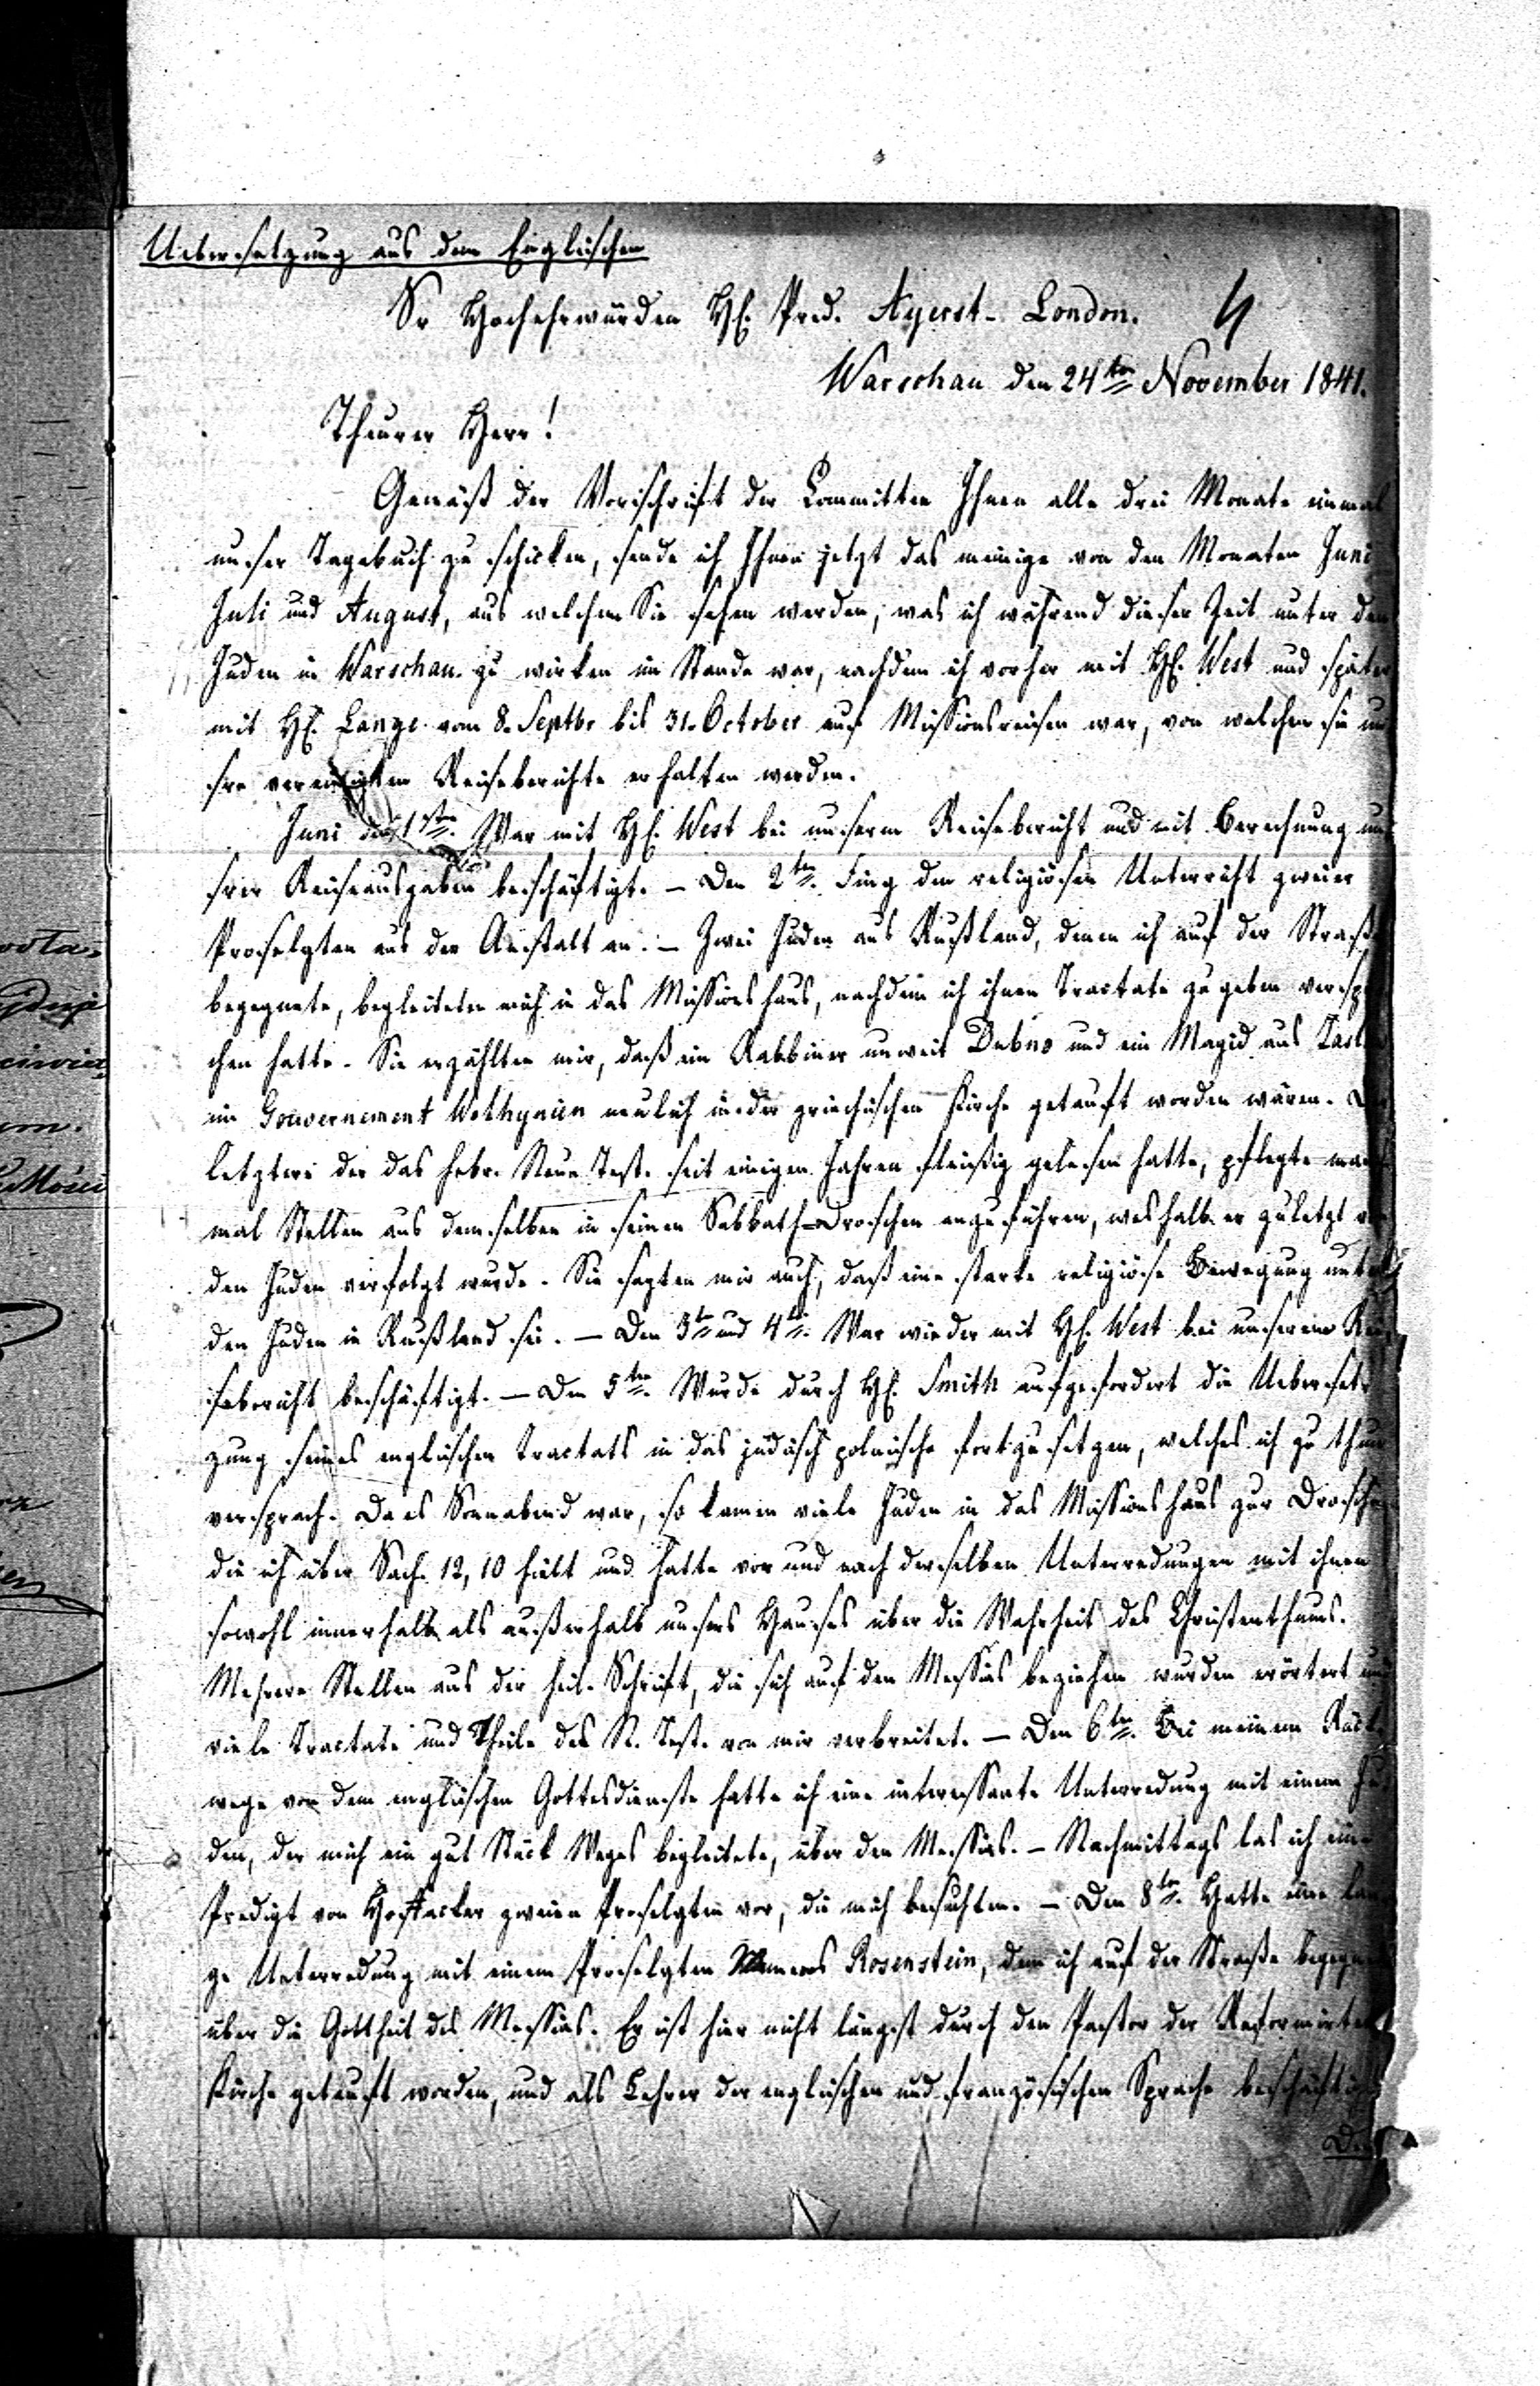 Uebersetzung aus dem Englischen
Sr Hochehrwürden H. Pred. Ayerst - London. 4
Warschau den 24ten November 1841.
Theurer Herr!
Gemäß der Vorschrift der Committee Ihnen alle drei Monate einmal
unser Tagebuch zu schicken, sende ich Ihnen jetzt das meinige von den Monaten Juni
Juli und August, aus welchem Sie sehen werden, was ich während dieser Zeit unter den
Juden in Warschau zu wirken im Stande war, nachdem ich vorher mit H. West und später
mit H. Lange vom 8. Septbr bis 31. October auf Missionsreisen war, von welchen sie un
sre vereinigten Reiseberichte erhalten werden.
Juni den 1ten. War mit H. West bei unserm Reisebericht und mit Berechnung un
srer Reiseausgaben beschäftigt. – Den 2ten. Fing den religiösen Unterricht zweier
Proselyten aus der Anstalt an. – Zwei Juden aus Rußland, denen ich auf der Straße
begegnete, begleiteten mich in das Missionshaus, nachdem ich ihnen Tractate zu geben verspro
chen hatte. Sie erzählten mir, daß ein Rabbiner unweit Dubno und ein Magid aus
im Gouvernement Wolhynien neulich in der griechischen Kirche getauft worden wären.
letztere der das hebr. Neue Test. seit einigen Jahren fleißig gelesen hatte, pflegte manch
mal Stellen aus demselben in seinen Sabbath-Droschen anzuführen, weshalb er zuletzt von
den Juden verfolgt wurde. Sie sagten mir auch, daß eine starke religiöse Bewegung unter
den Juden in Rußland sei. – Den 3ten und 4ten. War wieder mit H. West bei unserem Rei
sebericht beschäftigt. – Den 5ten. Wurde durch H. Smith aufgefordert die Ueberset
zung seines englischen Tractats in das jüdisch polnische fortzusetzen, welches ich zu thun
versprach. Da es Sonnabend war, so kamen viele Juden in das Missionshaus zur Drosche
die ich über Sach. 12, 10 hielt und hatte vor und nach derselben Unterredungen mit ihnen
sowohl innerhalb als außerhalb unsers Hauses über die Wahrheit des Christenthums.
Mehrere Stellen aus der heil. Schrift, die sich auf den Messias beziehen wurden erörtert und
viele Tractate und Theile des N. Test. von mir verbreitet. – Den 6ten. Bei meinem Rück
wege von dem englischen Gottesdienste hatte ich eine interessante Unterredung mit einem Ju
den, der mich ein gut Stück Weges begleitete, über den Messias. – Nachmittags las ich eine
Predigt von Hofacker zweien Proselyten vor, die mich besuchten. – Den 8ten. Hatte eine lan
ge Unterredung mit einem Proselyten Namens Rosenstein, dem ich auf der Straße begegnete
über die Gottheit des Messias. Er ist hier nicht längst durch den Pastor der Reformirten
Kirche getauft worden, und als Lehrer der englischen und französischen Sprache beschäftigt